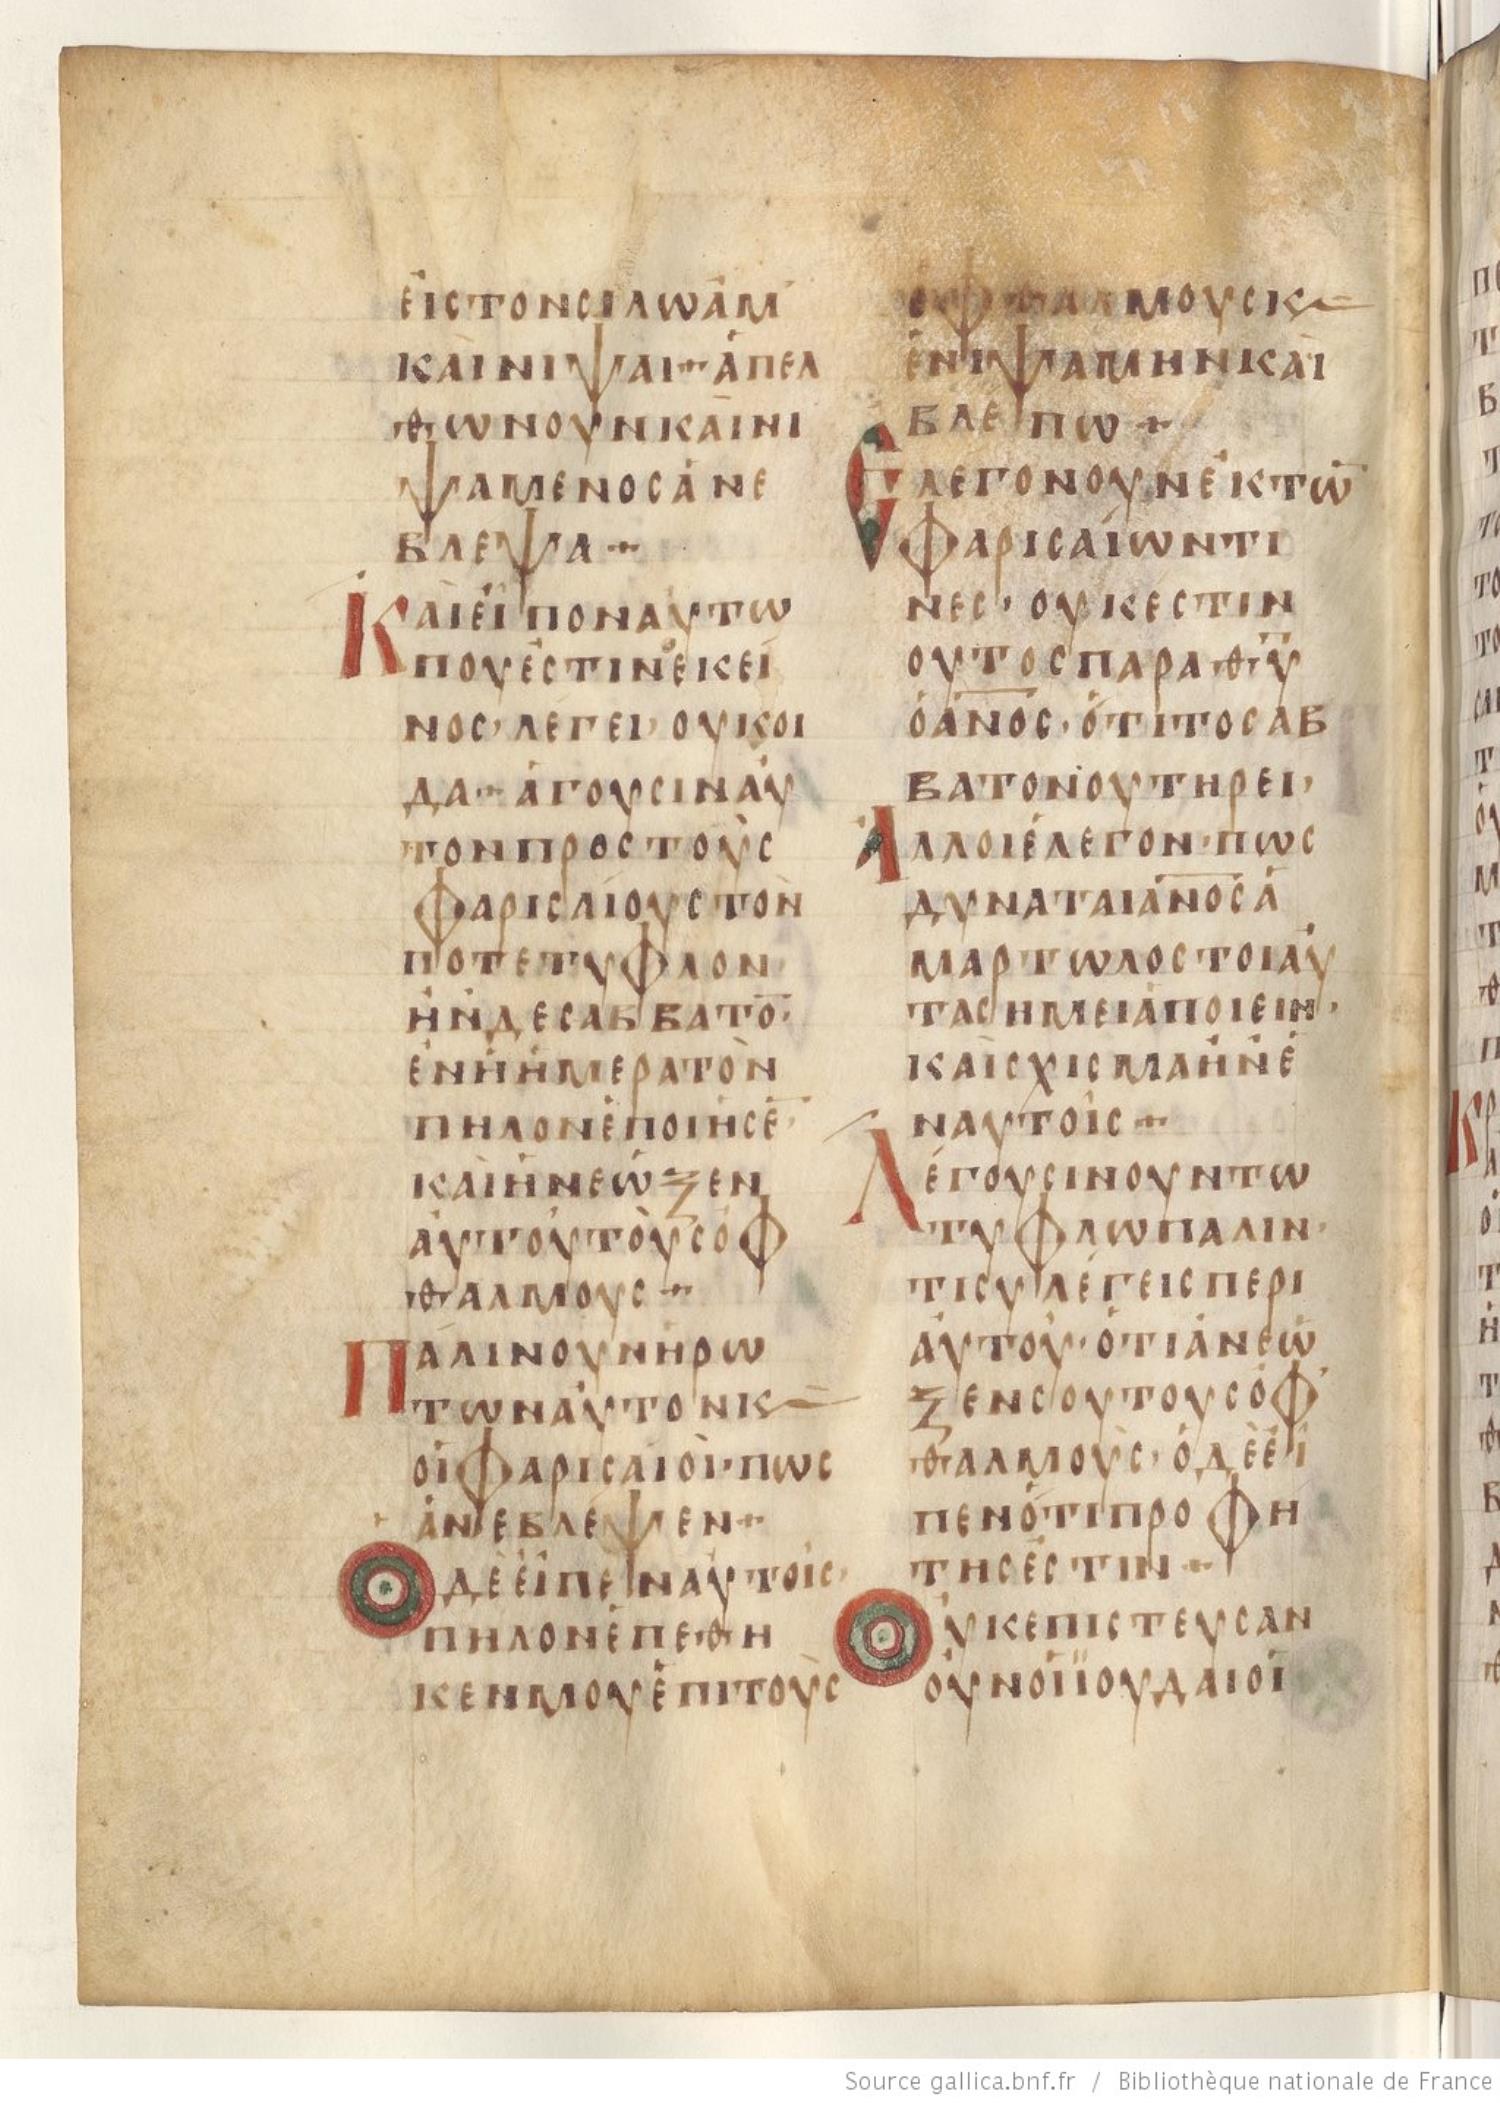 ΕΙΣΤΟΝΣΙΛΩΑΜ
ΚΑΙΝΙΨΑΙ+ΑΠΕΛ
ΘΩΝΟΥΝΚΑΙΝΙ
ΨΑΜΕΝΟΣΑΝΕ
ΒΛΕΨΑ+
ΚΑΙΕΙΠΟΝΑΥΤΩ
ΠΟΥΕΣΤΙΝΕΚΕΙ
ΝΟΣ·ΛΕΓΕΙ·ΟΥΚΟΙ
ΔΑ+ΑΓΟΥΣΙΝΑΥ
ΤΟΝΠΡΟΣΤΟΥΣ
ΦΑΡΙΣΑΙΟΥΣΤΟΝ
ΠΟΤΕΤΥΦΛΟΝ·
ΗΝΔΕΣΑΒΒΑΤΟ̅·
ΕΝΗΗΜΕΡΑΤΟΝ
ΠΗΛΟΝΕΠΟΙΗΣΕ̅·
ΚΑΙΗΝΕΩΞΕΝ
ΑΥΤΟΥΤΟΥΣΟΦ
ΘΑΛΜΟΥΣ+
ΠΑΛΙΝΟΥΝΗΡΩ
ΤΩΝΑΥΤΟΝΚ
ΟΙΦΑΡΙΣΑΙΟΙ·ΠΩΣ
ΑΝΕΒΛΕΨΕΝ+
ΟΔΕΕΙΠΕΝΑΥΤΟΙΣ·
ΠΗΛΟΝΕΠΕΘΗ
ΚΕΝΜΟΥΕΠΙΤΟΥΣ
ΟΦΘΑΛΜΟΥΣΚ
ΕΝΙΨΑΜΗΝΚΑΙ
ΒΛΕΠΩ+
ΕΛΕΓΟΝΟΥΝΕΚΤΩ̅
ΦΑΡΙΣΑΙΩΝΤΙ
ΝΕΣ·ΟΥΚΕΣΤΙΝ
ΟΥΤΟΣΠΑΡΑΘ̅Υ̅
ΟΑ̅Ν̅Ο̅Σ·ΟΤΙΤΟΣΑΒ
ΒΑΤΟΝΟΥΤΗΡΕΙ·
ΑΛΛΟΙΕΛΕΓΟΝ·ΠΩΣ
ΔΥΝΑΤΑΙΑ̅Ν̅Ο̅ΣΑ
ΜΑΡΤΩΛΟΣΤΟΙΑΥ
ΤΑΣΗΜΕΙΑΠΟΙΕΙΝ·
ΚΑΙΣΧΙΣΜΑΗΝΕ
ΝΑΥΤΟΙΣ+
ΛΕΓΟΥΣΙΝΟΥΝΤΩ
ΤΥΦΛΩΠΑΛΙΝ·
ΤΙΣΥΛΕΓΕΙΣΠΕΡΙ
ΑΥΤΟΥ·ΟΤΙΑΝΕΩ
ΞΕΝΣΟΥΤΟΥΣΟΦ
ΘΑΛΜΟΥΣ·ΟΔΕΕΙ
ΠΕΝΟΤΙΠΡΟΦΗ
ΤΗΣΕΣΤΙΝ+
ΟΥΚΕΠΙΣΤΕΥΣΑΝ
ΟΥΝΟΙΪΟΥΔΑΙΟΙ
Source gallica.bnf.fr / Bibliothèque nationale de France